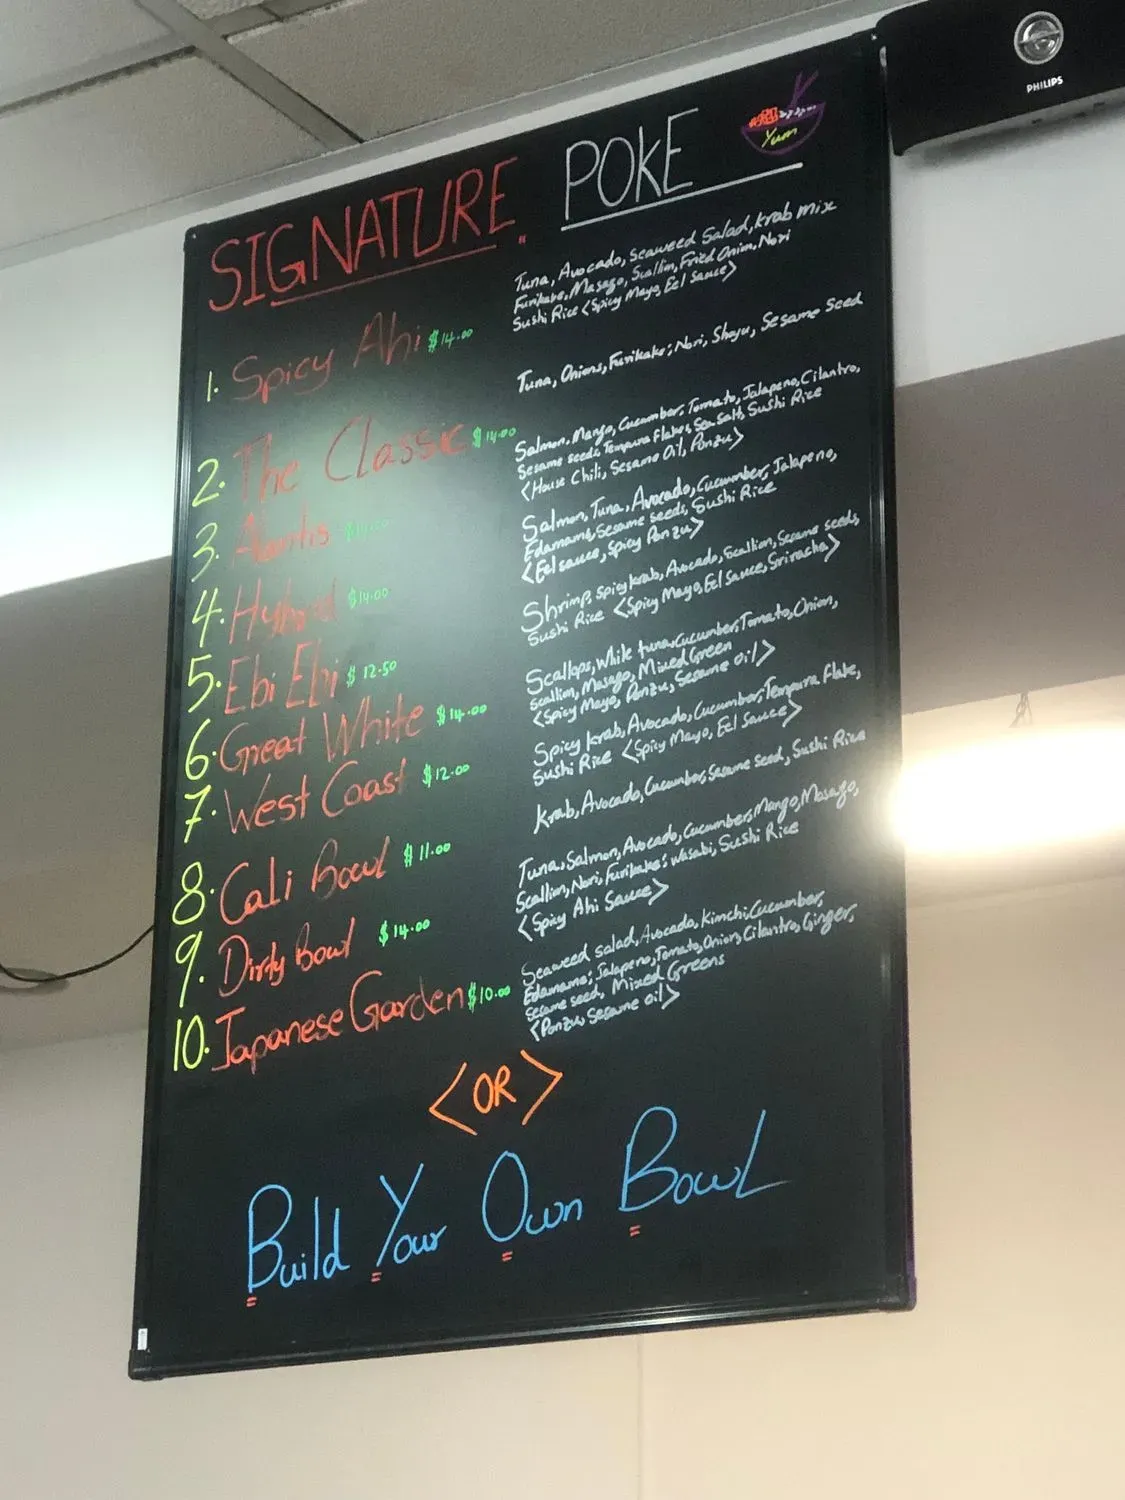 PHILIPS
SIGNATURE POKE
Yum
1. Spicy Ahi $14.00
Tuna, Avocado, Seaweed Salad, Krab Mix
Furikake, Masago, Scallion, Fried Onion, Nori
Sushi Rice <Spicy Mayo, Eel Sauce>
2. The Classic $14.00
Tuna, Onions, Furikake, Nori, Shoyu, Sesame Seed
3.
Salmon, Mango, Cucumber, Tomato, Jalapeno, Cilantro,
Sesame seeds, Tempura Flakes, Sea Salt, Sushi Rice
<House Chili, Sesame Oil, Ponzu>
4. Hybrid $14.00
Salmon, Tuna, Avocado, Cucumber, Jalapeno,
Edamame, Sesame seeds, Sushi Rice
<Eel sauce, Spicy Ponzu>
5. Ebi Ebi $12.50
Shrimp, spicy krab, Avocado, Scallion, Sesame seeds,
Sushi Rice <Spicy Mayo, Eel Sauce, Sriracha>
6. Great White $14.00
Scallops, White tuna, Cucumber, Tomato, Onion,
Scallion, Masago, Mixed Green
<Spicy Mayo, Ponzu, Sesame oil>
7. West Coast $12.00
Spicy Krab, Avocado, Cucumber, Tempura Flake,
Sushi Rice <Spicy Mayo, Eel Sauce>
8. Cali Bowl $11.00
Krab, Avocado, Cucumber, Sesame seed, Sushi Rice
9. Dirty Bowl $14.00
Tuna, Salmon, Avocado, Cucumber, Mango, Masago,
Scallion, Nori, Furikake, Wasabi, Sushi Rice
<Spicy Ahi Sauce>
10. Japanese Garden $10.00
Seaweed salad, Avocado, Kimchi, Cucumber,
Edamame, Jalapeno, Tomato, Onion, Cilantro, Ginger,
sesame seed, Mixed Greens
<Ponzu, Sesame oil>
<OR>
Build Your Own Bowl